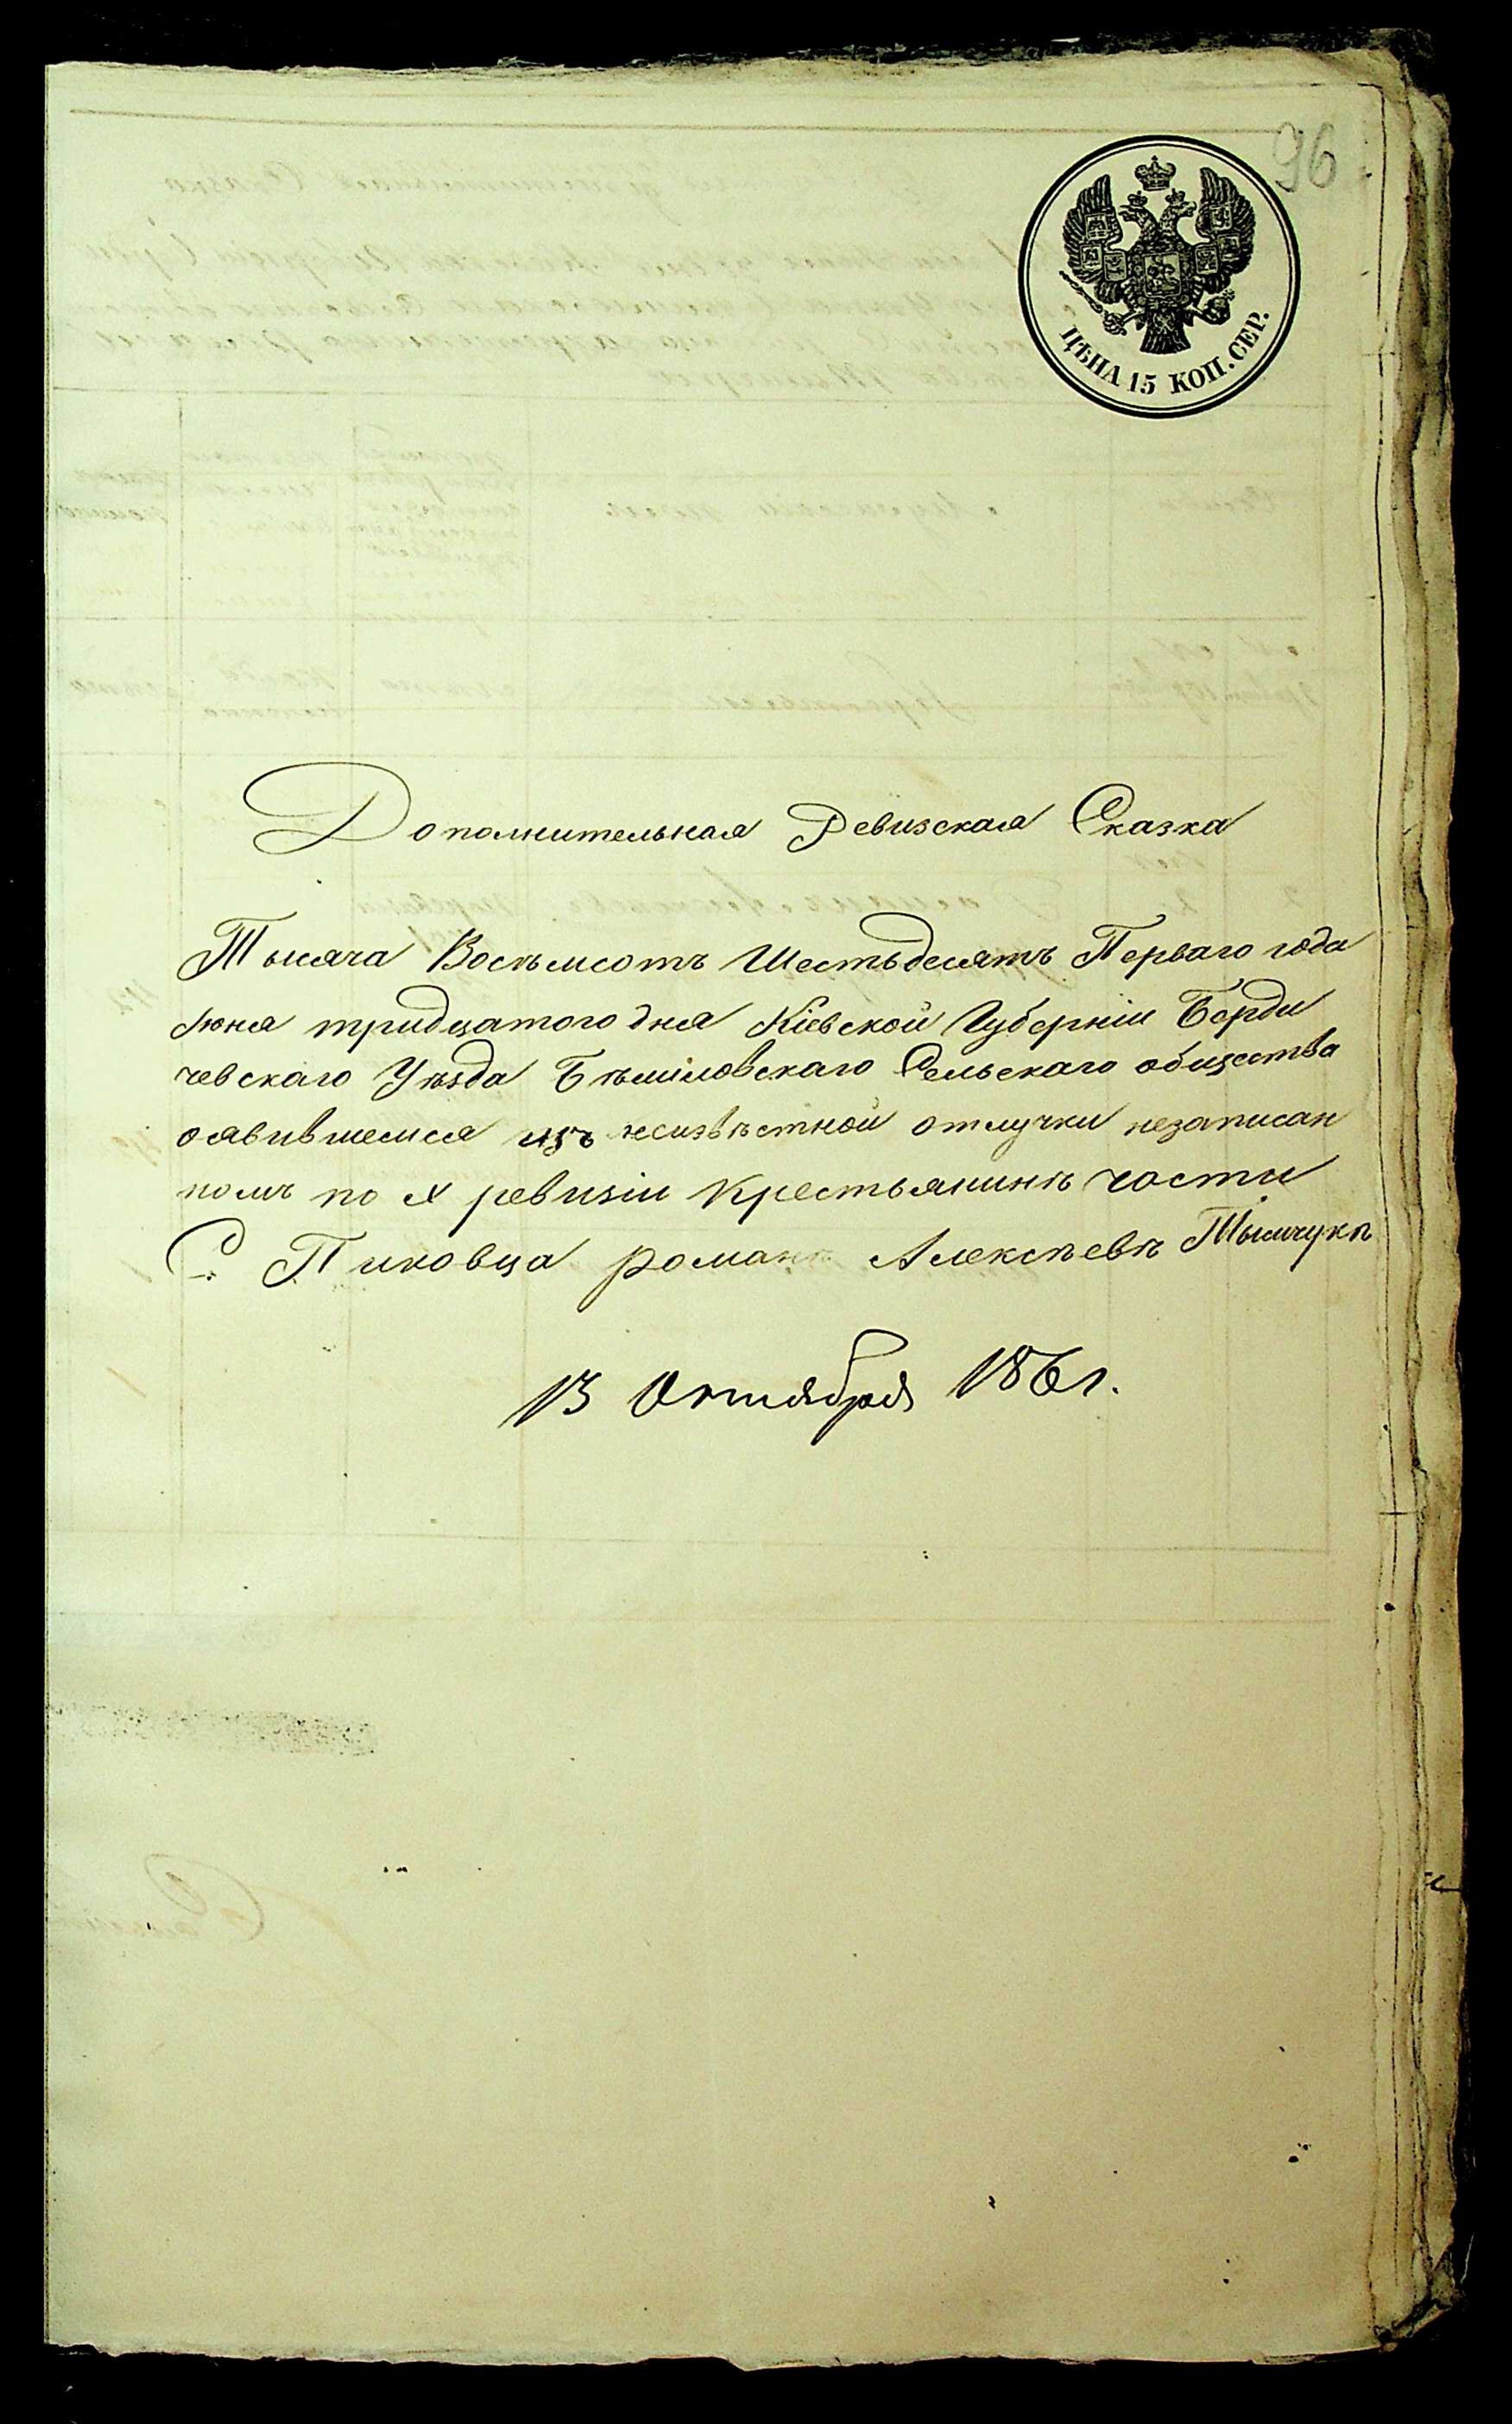 96
ЦѢНА 15 КОП. СЕР.
Дополнительная Ревизская Сказка
Тысяча Восѣмсотъ Шестьдесятъ Перваго года
Июня тридцатого дня Кіевской Губерніи Берди
чевскаго Уѣзда Бѣлиловскаго Сельскаго общества
оявившемися изъ неизвѣстной отлучки незаписан
номъ по X ревизіи крестьянинѣ части
С. Пиковца романѣ Алексѣевѣ Тымчукѣ
13 Октября 1861.